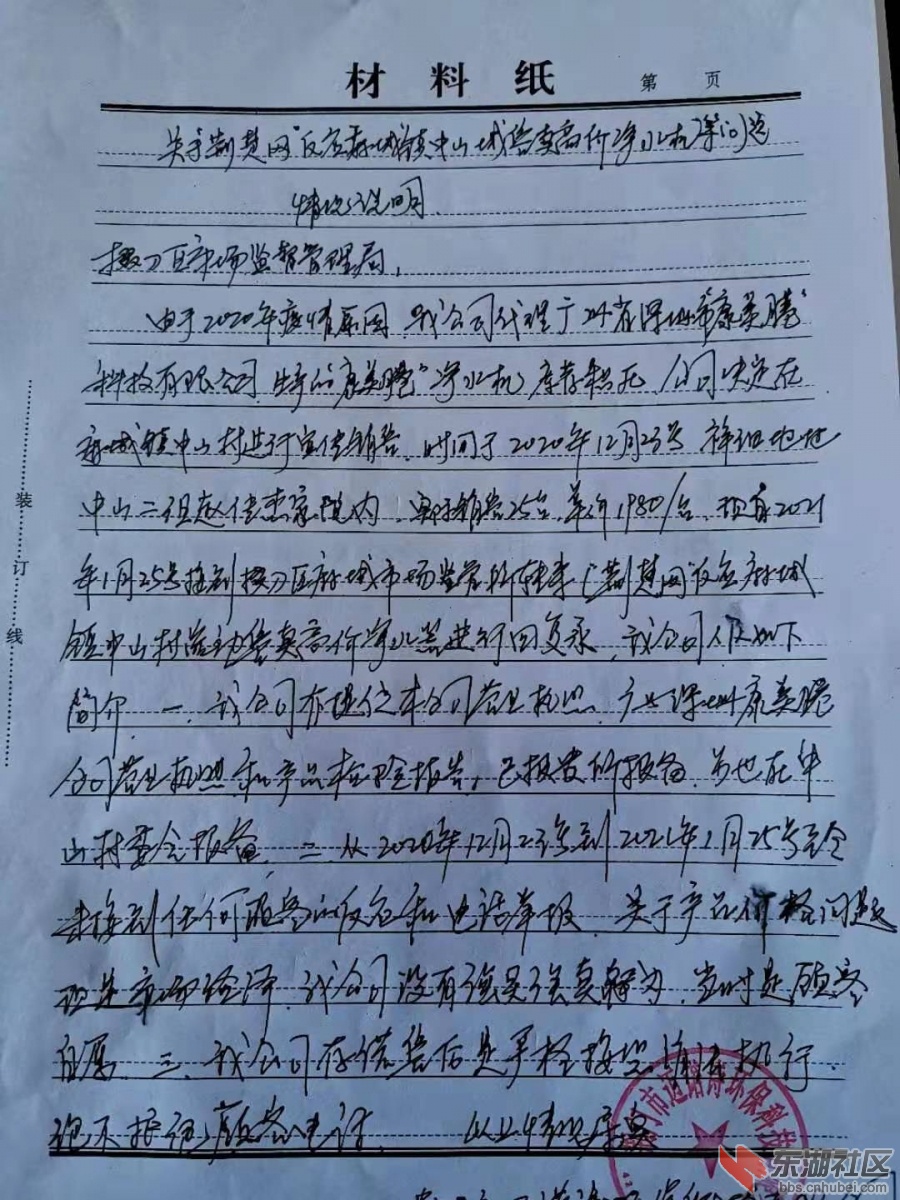 材料纸 第 页
关于荆楚网"反应麻城镇中山城售卖高价净水机"等问题
情况说明
掇刀区市场监督管理局,
由于2020年疫情原因 我公司代理广东省深圳市"康美腾"
科技有限公司 生产的"康美腾"净水机 库存积压 公司决定在
麻城镇中山村进行宣传销售 时间于2020年12月23号 详细地址
中山二组赵传 家院内 实际销售25台 单价1980/台 现有2021
年1月25号接到掇刀区麻城市场监管所转来《荆楚网"反应麻城
镇中山村 卖高价净水器进行回复 我公司做如下
简介 一、我公司有提供本公司营业执照、广东深圳康美腾
公司营业执照和产品检验报告, 已报贵所报备 另也在中
山村委会报备 二、从2020年12月23号到2021年1月25号至今
未接到任何顾客的反应和电话举报 关于产品价格问题
现是市场经济 我公司没有强买强卖 当时是顾客
自愿 三、我公司在 售后是严格按照 执行
顾客 以上情况属实
装订线
市 环保科技
东湖社区
bbs.cnhubei.com